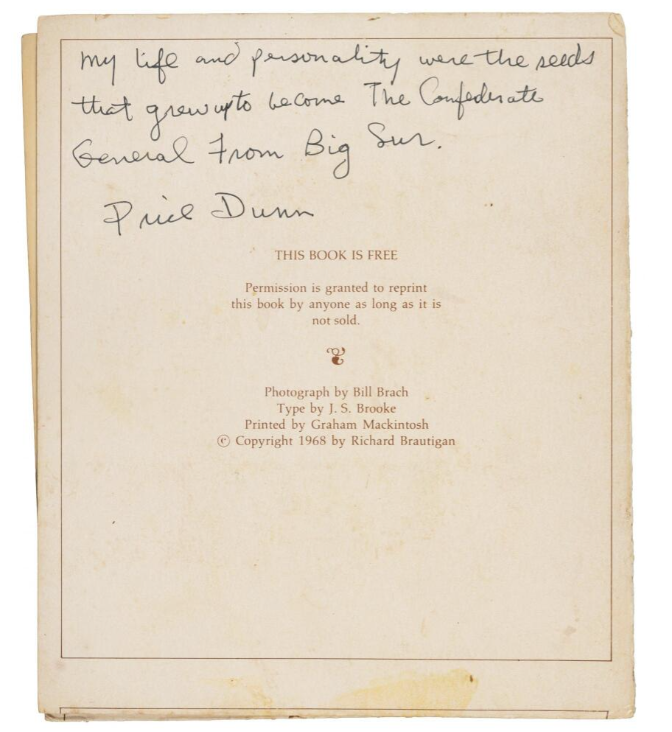 My life and personality were the seeds
that grew up to become The Confederate
General From Big Sur.
Price Dunn
THIS BOOK IS FREE
Permission is granted to reprint
this book by anyone as long as it is
not sold.
Photograph by Bill Brach
Type by J. S. Brooke
Printed by Graham Mackintosh
© Copyright 1968 by Richard Brautigan